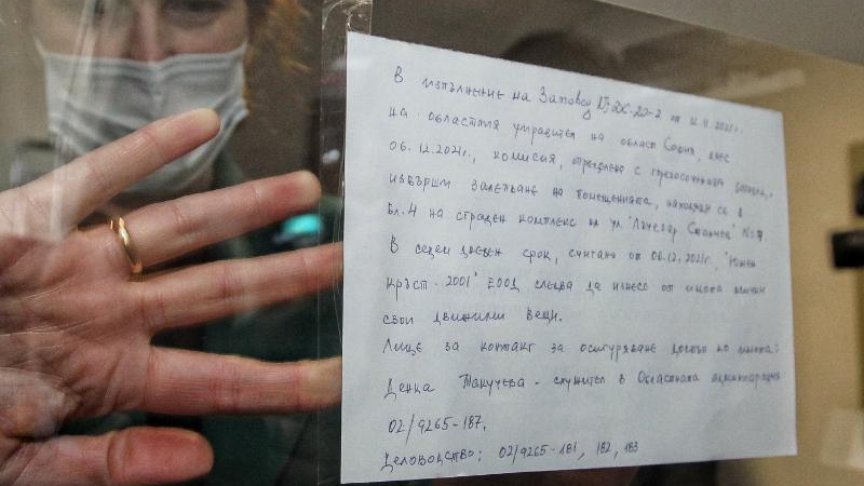 В изпълнение на Заповед № ДС-20-2 от 12.11.2021г.
на областния управител на област София, днес
06.12.2021г., комисия, определена с горепосочената заповед,
извърши запечатване на помещенията, находящи се в
бл. 4 на сграден комплекс на ул. "Лъчезар Станчев" №
В седем дневен срок, считано от 06.12.2021г, "Южен
кръст - 2001" ЕООД следва да изнесе от имота всички
свои движими вещи.
Лице за контакт за осигуряване достъп до имота:
Денка - служител в Областната администрация
02/9265-187.
Деловодство: 02/9265-181, 182, 183